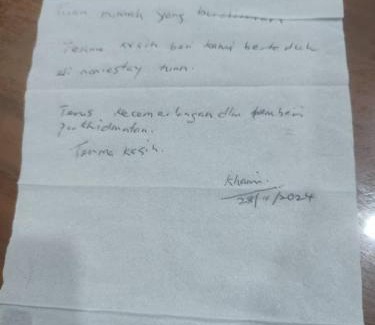 Tuan rumah yang
Terima kasih beri kami berteduh
di homestay tuan.
Terus kecemerlangan dlm pemberi
perkhidmatan.
Terima kasih.
Khairi
28/11/2024